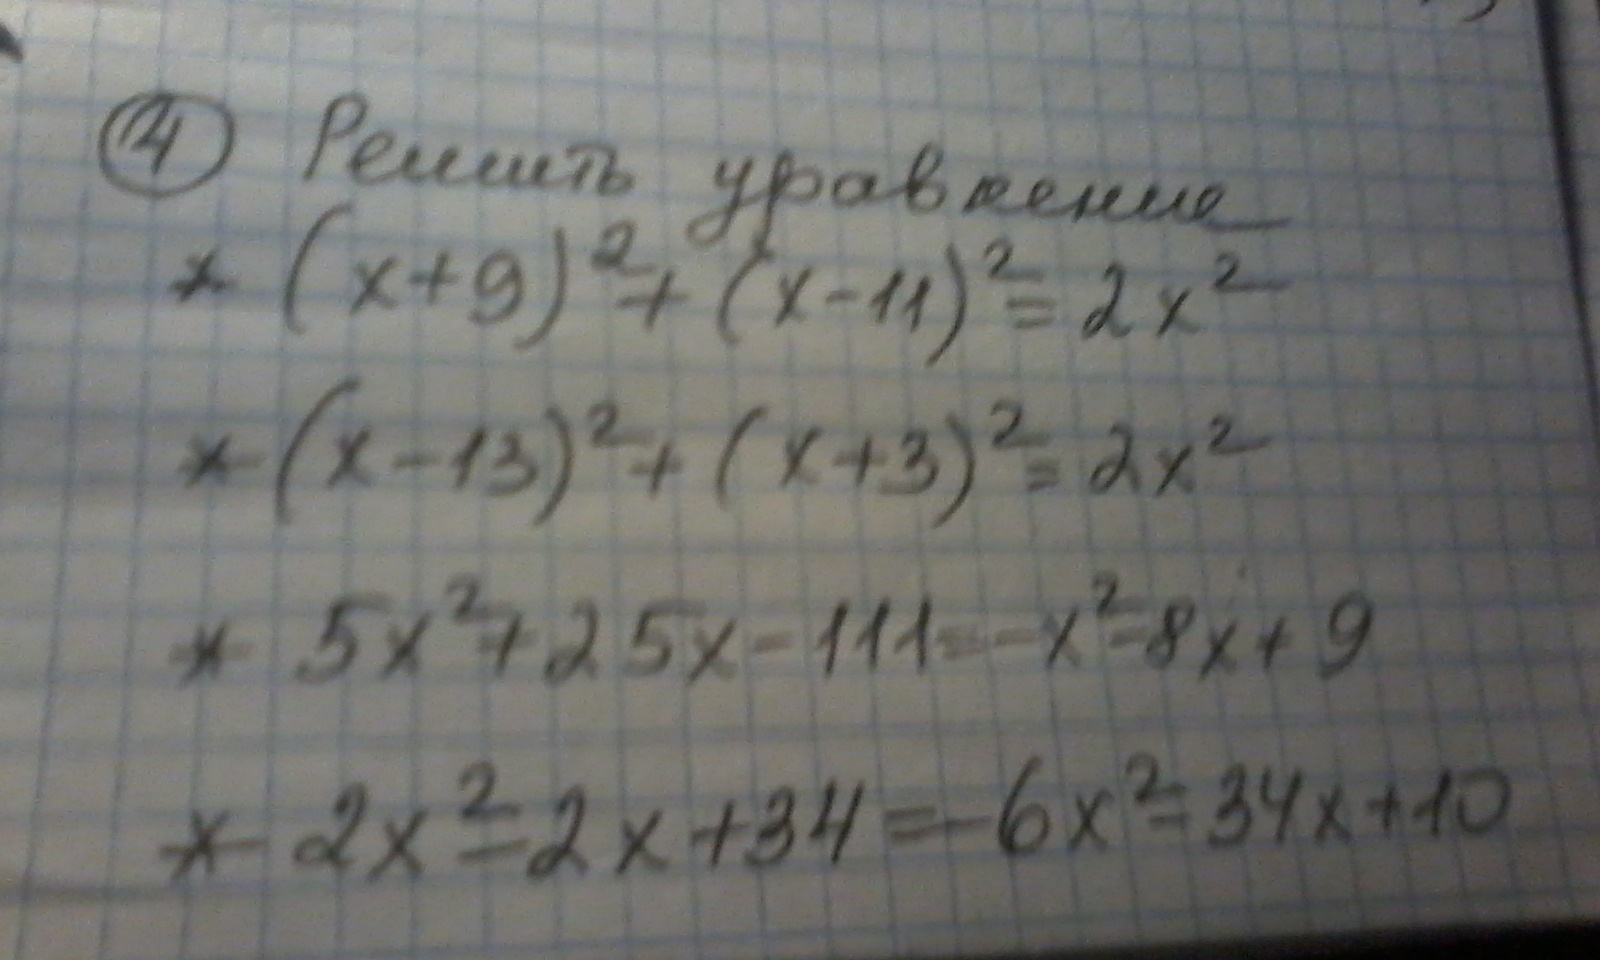 ④ Решить уравнение
* (x+9)² + (x-11)² = 2x²
* (x-13)² + (x+3)² = 2x²
* 5x² + 25x - 111 = -x² - 8x + 9
* 2x² - 2x + 34 = -6x² - 34x + 10